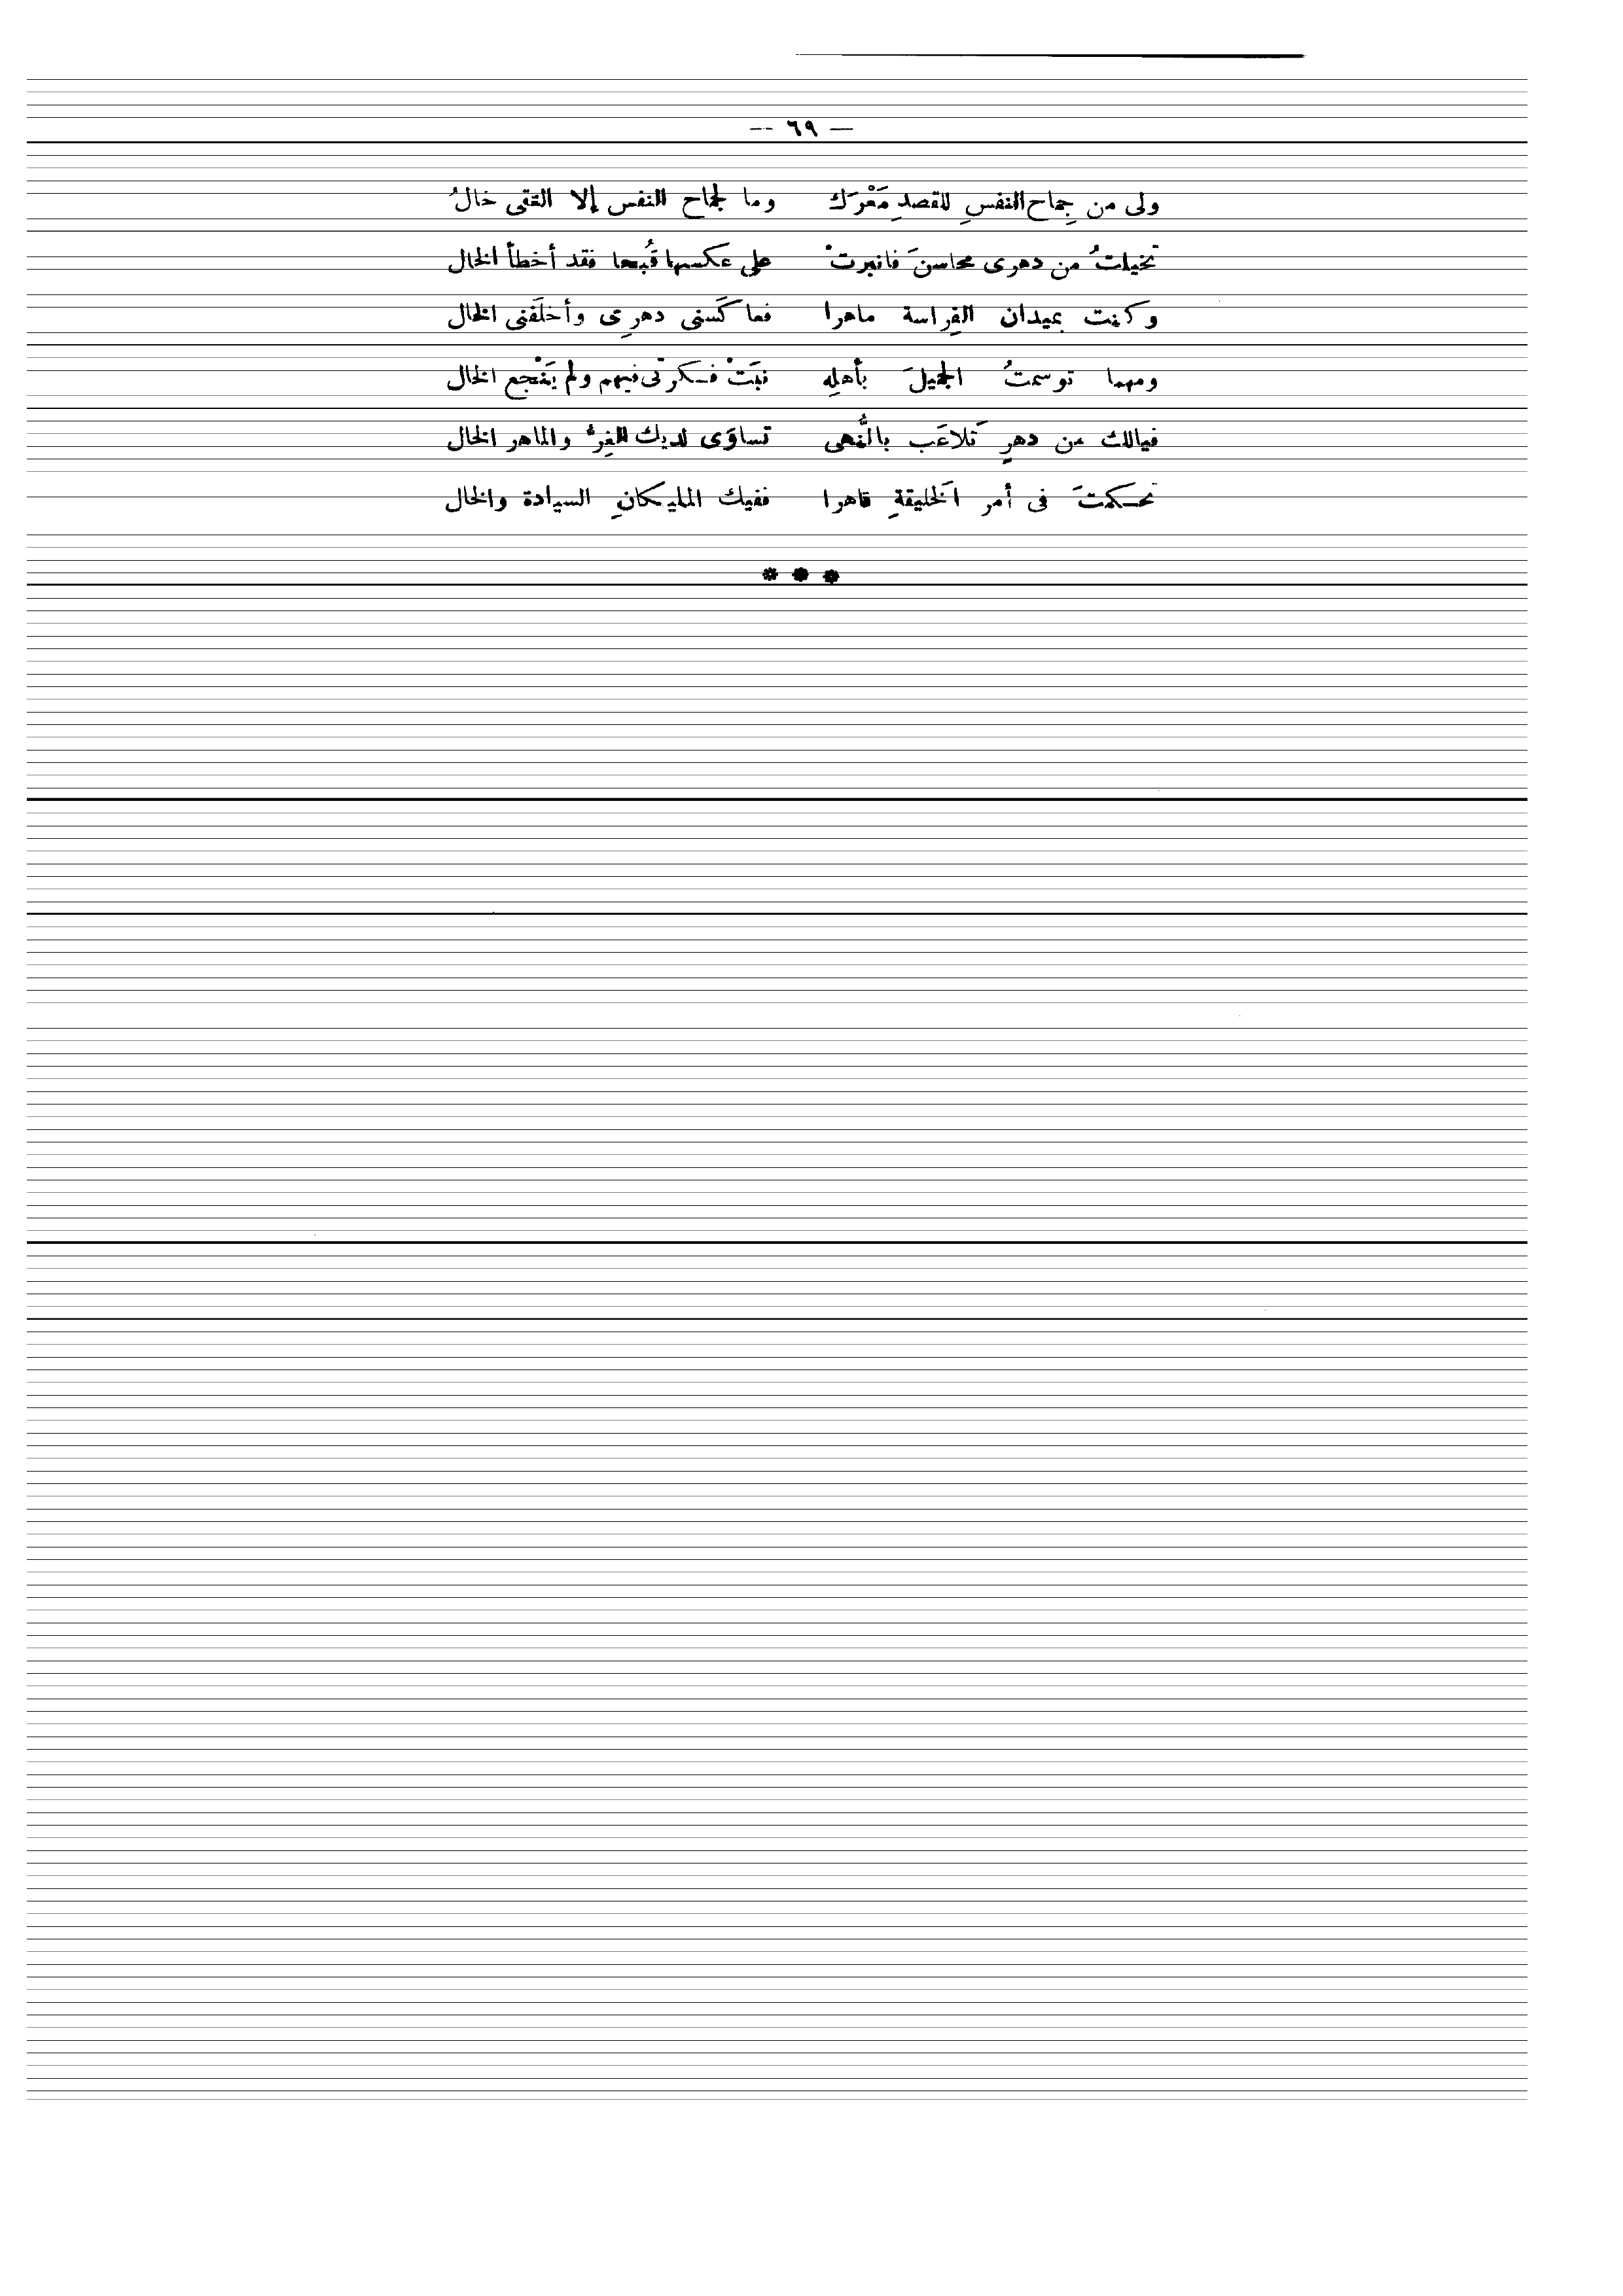 — ٦٩ —
ولى من جِماح النفسِ للقصدِ مَعْرَك وما لجماح النفس إلا التقى خالُ
تخيلتُ من دهرى محاسنَ فانبرتْ على عكسها قُبحا فقد أخطأ الخال
وكنت بميدان الفِراسة ماهرا فعاكَسنى دهرِى وأخلَفنى الخال
ومهما توسمتُ الجميلَ بأهلِه نبَتْ فكرتى فيهم ولم يَنْجع الخال
فيالك من دهرٍ تَلاعَب بالنُّهى تساوَى لديك الغِرُّ والماهر الخال
تحكمتَ فى أمر الَخليقةِ قاهرا ففيك المليكانِ السيادة والخال
* * *